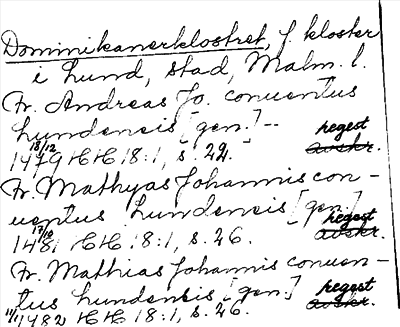 Dominikanerklostret, f. kloster
i Lund, stad, Malm. l.
Fr. Andreas Jo. conuentus
lundensis [gen.] --
18/12 1479 HH 18:1, s. 22. regest avskr.
Fr. Mathyas Johannis con-
uentus lundensis [gen.]
17/10 1481 HH 18:1, s. 26. regest avskr.
Fr. Mathias Johannis conuen-
tus lundensis [gen.] regest avskr.
11/1 1482 HH 18:1, s. 26.